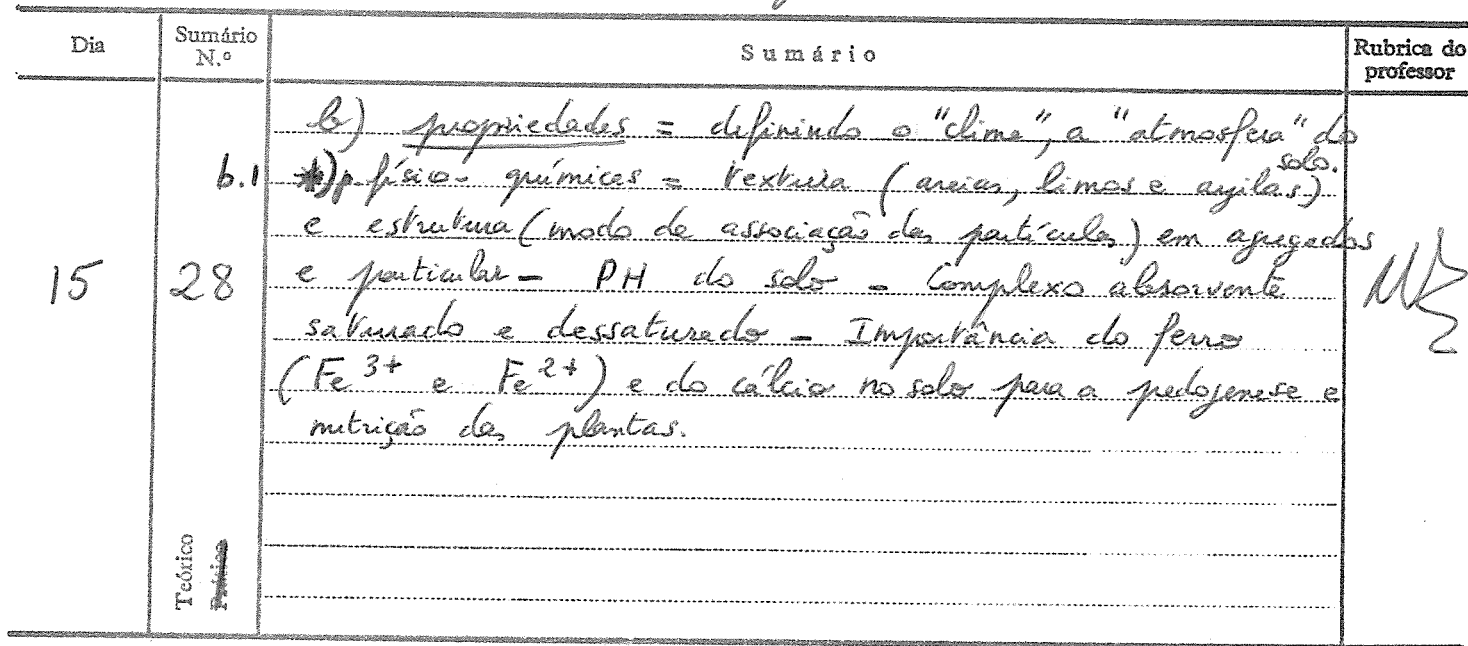 Dia
Sumário N.º
Sumário
Rubrica do professor
b) propriedades = definindo o "clima", a "atmosfera" do solo.
b.1 p. físico-químicas = textura (areias, limos e argilas)
e estrutura (modo de associação das partículas) em agregados
15 28 e particular - PH do solo - Complexo absorvente
saturado e dessaturado - Importância do ferro
(Fe 3+ e Fe 2+) e do cálcio no solo para a pedogenese e
nutrição das plantas.
Teórico
Prático